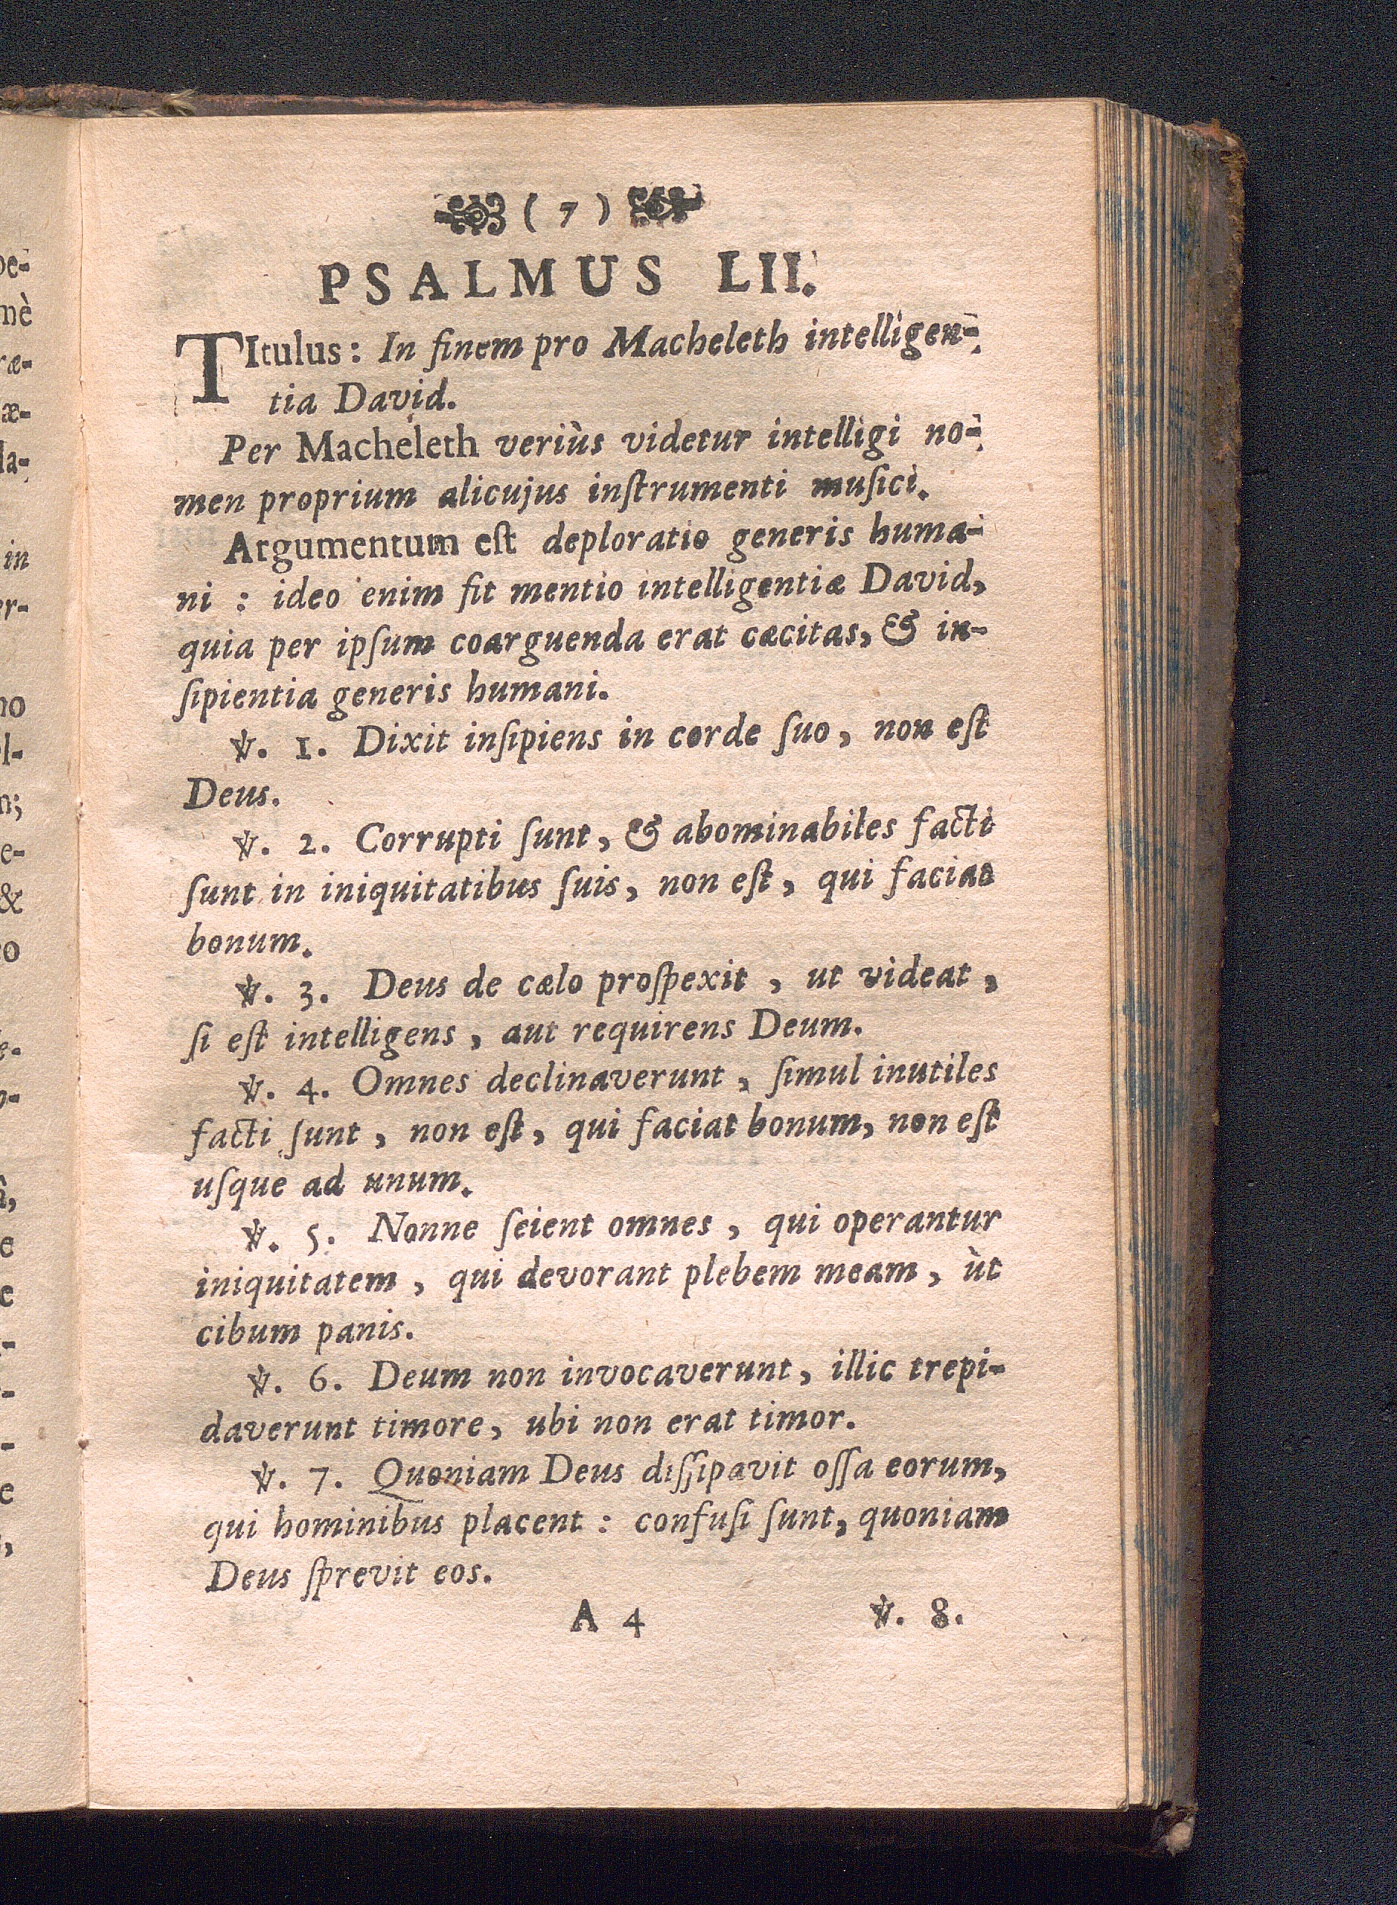 ( 7 )
PSALMUS LII.
TItulus: In finem pro Macheleth intelligen-
tia David.
Per Macheleth veriùs videtur intelligi no-
men proprium alicujus inſtrumenti muſici.
Argumentum eſt deploratio generis huma-
ni : ideo enim fit mentio intelligentiæ David,
quia per ipſum coarguenda erat cæcitas, & in-
ſipientia generis humani.
℣. 1. Dixit inſipiens in corde ſuo, non eſt
Deus.
℣. 2. Corrupti ſunt, & abominabiles facti
ſunt in iniquitatibus ſuis, non eſt, qui faciat
bonum.
℣. 3. Deus de cælo proſpexit, ut videat,
ſi eſt intelligens, aut requirens Deum.
℣. 4. Omnes declinaverunt, ſimul inutiles
facti ſunt, non eſt, qui faciat bonum, non eſt
uſque ad unum.
℣. 5. Nonne ſeient omnes, qui operantur
iniquitatem, qui devorant plebem meam, ùt
cibum panis.
℣. 6. Deum non invocaverunt, illic trepi-
daverunt timore, ubi non erat timor.
℣. 7. Quoniam Deus diſſipavit oſſa eorum,
qui hominibus placent : confuſi ſunt, quoniam
Deus ſprevit eos.
A 4 ℣. 8.